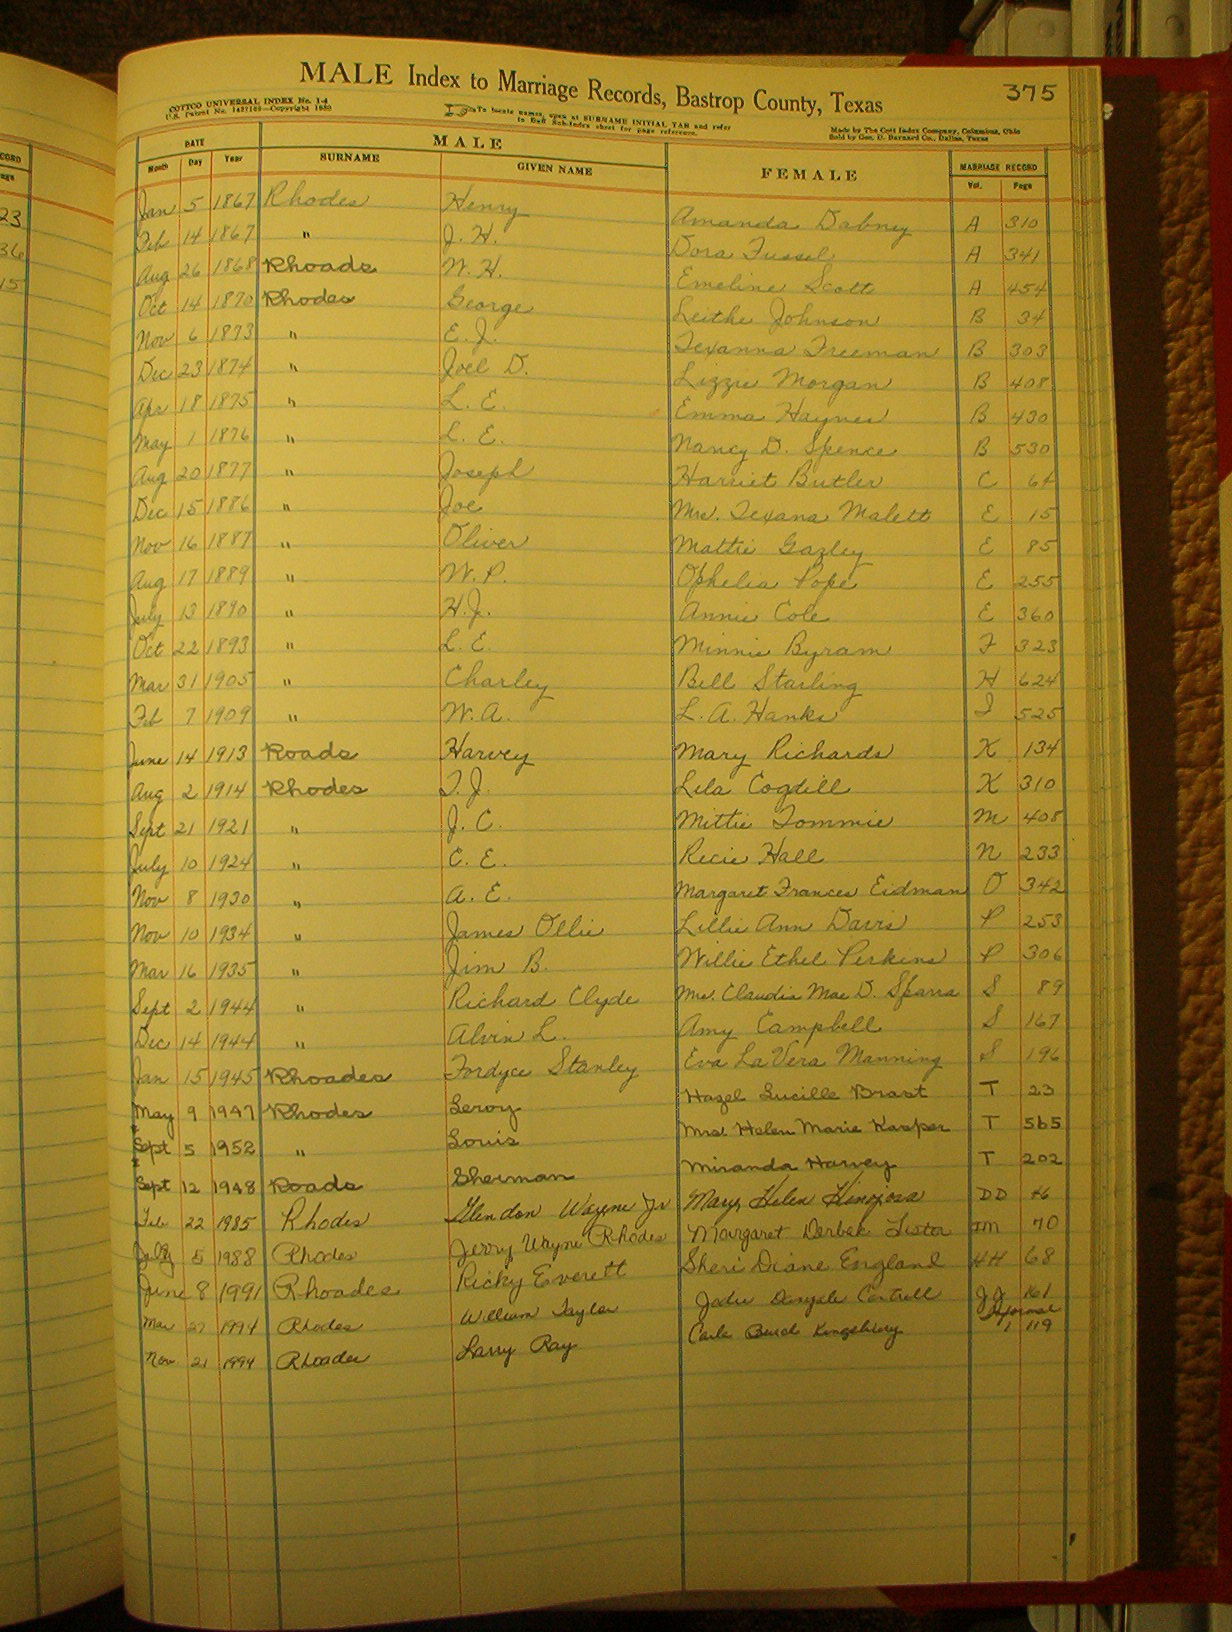 CORD
age
23
36
15
MALE Index to Marriage Records, Bastrop County, Texas 375
COTTCO UNIVERSAL INDEX No. 1-4
U.S. Patent No. 1427103—Copyright 1930
To locate names, open at SURNAME INITIAL TAB and refer
to Buff Sub-Index sheet for page reference.
Made by The Cott Index Company, Columbus, Ohio
Sold by Geo. D. Barnard Co., Dallas, Texas
DATE MALE FEMALE MARRIAGE RECORD
Month Day Year SURNAME GIVEN NAME Vol. Page
Jan 5 1867 Rhodes Henry Amanda Dabney A 310
Feb 14 1867 " J. H. Dora Fussel A 341
Aug 26 1868 Rhoads W. H. Emeline Scott A 454
Oct 14 1870 Rhodes George Leithe Johnson B 34
Nov 6 1873 " E. J. Texanna Freeman B 303
Dec 23 1874 " Joel D. Lizzie Morgan B 408
Apr 18 1875 " L. E. Emma Haynes B 430
May 1 1876 " L. E. Nancy D. Spence B 530
Aug 20 1877 " Joseph Harriet Butler C 64
Dec 15 1886 " Joe Mrs. Texana Malett E 15
Nov 16 1887 " Oliver Mattie Gazley E 85
Aug 17 1889 " W. P. Ophelia Pope E 255
July 13 1890 " H. J. Annie Cole E 360
Oct 22 1893 " L. E. Minnie Byram F 323
Mar 31 1905 " Charley Bell Starling H 624
Feb 7 1909 " W. A. L. A. Hanks I 525
June 14 1913 Roads Harvey Mary Richards K 134
Aug 2 1914 Rhodes T. J. Lela Cogdill K 310
Sept 21 1921 " J. C. Mittie Tommie M 408
July 10 1924 " C. E. Recie Hall N 233
Nov 8 1930 " A. E. Margaret Frances Eidman O 342
Nov 10 1934 " James Ollie Lillie Ann Davis P 253
Mar 16 1935 " Jim B. Willie Ethel Perkins P 306
Sept 2 1944 " Richard Clyde Mrs. Claudia Mae D. Sparrs S 89
Dec 14 1944 " Alvin L. Amy Campbell S 167
Jan 15 1945 Rhoades Fordyce Stanley Eva LaVera Manning S 196
May 9 1947 Rhodes Leroy Hazel Lucille Brast T 23
Sept 5 1952 " Louis Mrs. Helen Marie Kasper T 565
Sept 12 1948 Roads Sherman Miranda Harvey T 202
Feb 22 1985 Rhodes Glendon Wayne Jr Mary Helen Hinojosa DD 46
July 5 1988 Rhodes Jerry Wayne Rhodes Margaret 70
June 8 1991 Rhoades Ricky Everett Sheri Diane England HH 68
Mar 27 1994 Rhodes William Taylor Jodie JJ 161
Nov 21 1994 Rhoades Larry Ray Kingsbury 1 119